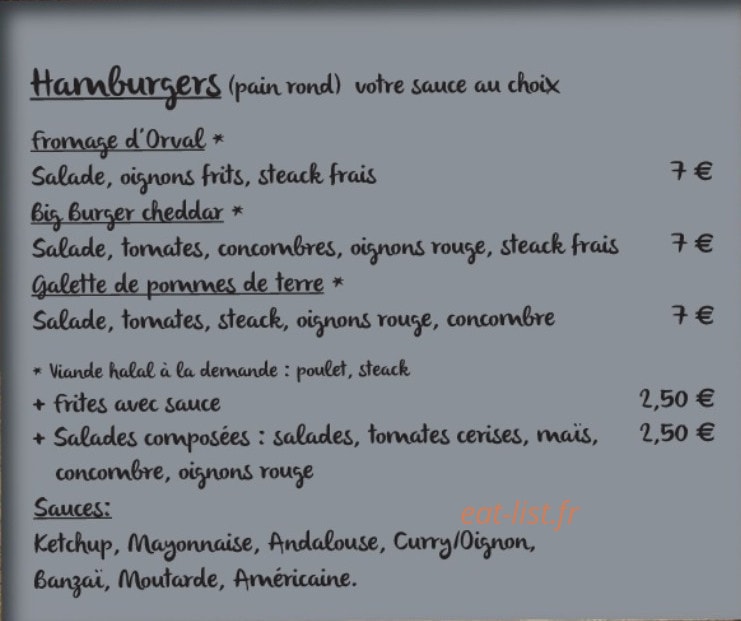 Hamburgers (pain rond) votre sauce au choix
fromage d'Orval *
Salade, oignons frits, steack frais 7 €
Big Burger cheddar *
Salade, tomates, concombres, oignons rouge, steack frais 7 €
Galette de pommes de terre *
Salade, tomates, steack, oignons rouge, concombre 7 €
* Viande halal à la demande : poulet, steack
+ frites avec sauce 2,50 €
+ Salades composées : salades, tomates cerises, maïs, 2,50 €
concombre, oignons rouge
Sauces:
eat-list.fr
Ketchup, Mayonnaise, Andalouse, Curry/Oignon,
Banzaï, Moutarde, Américaine.